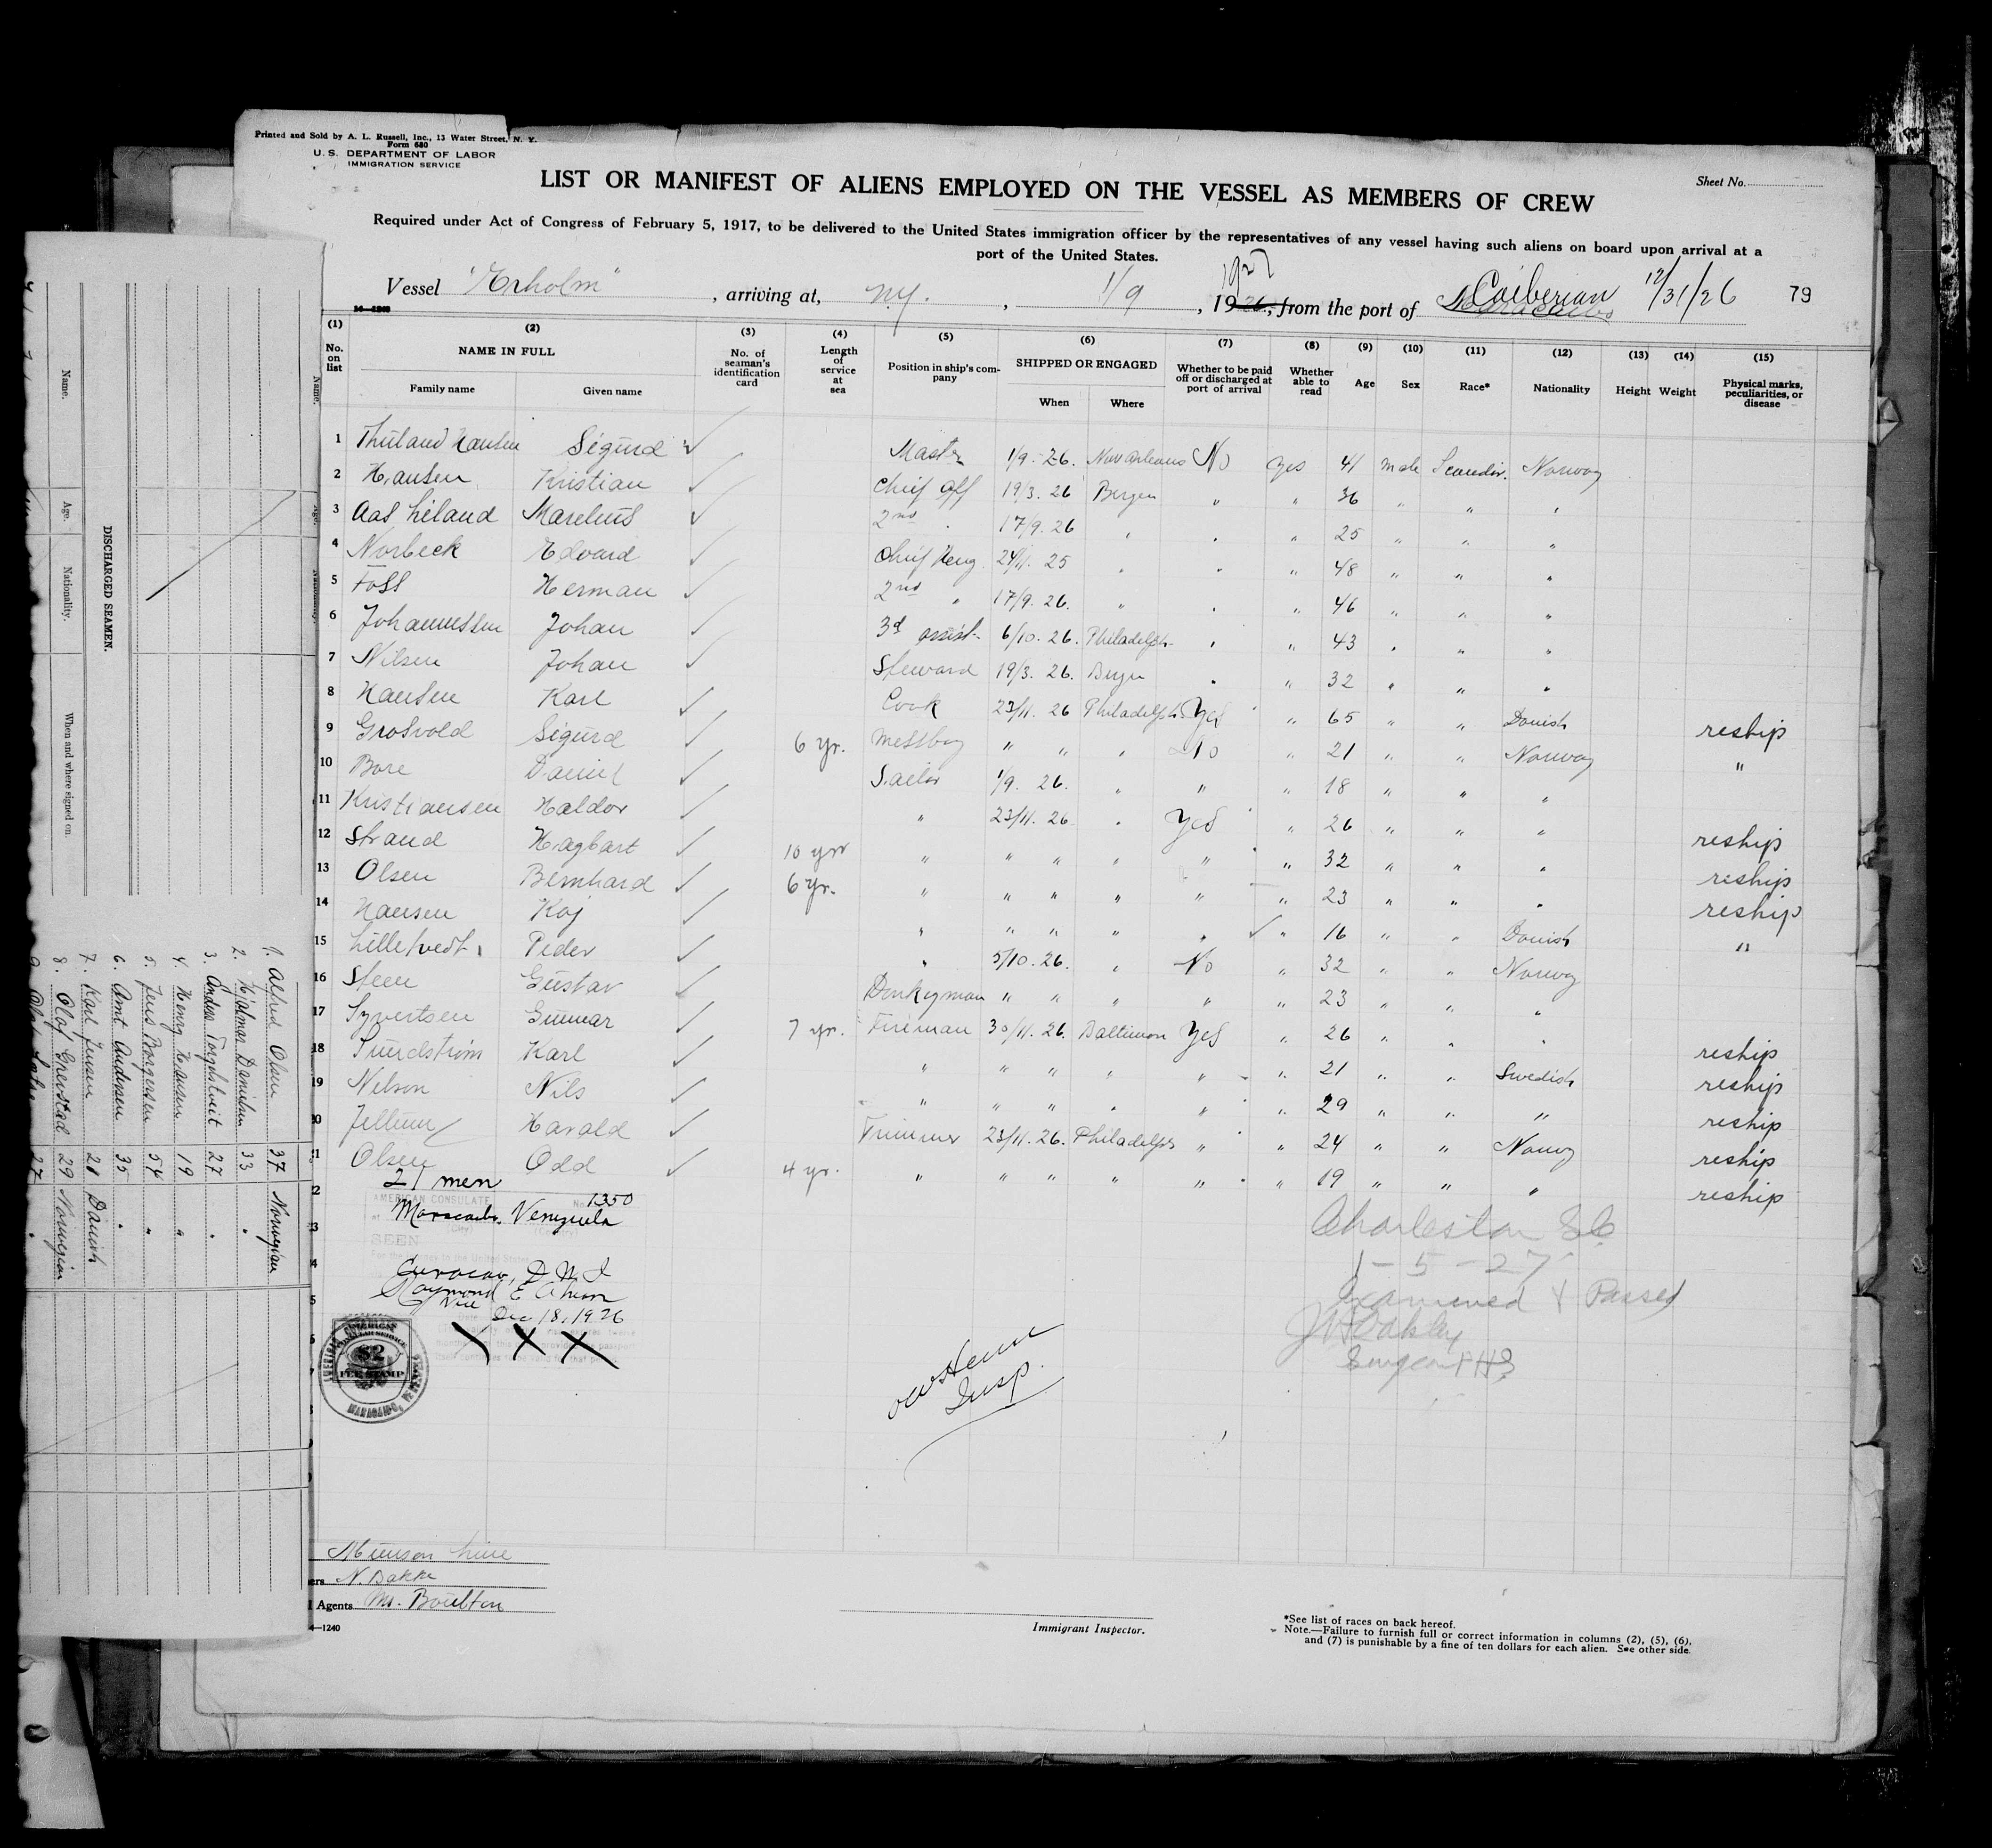 Printed and Sold by A. L. Russell, Inc., 13 Water Street, N. Y.
Form 680
U. S. DEPARTMENT OF LABOR
IMMIGRATION SERVICE
Sheet No.
LIST OR MANIFEST OF ALIENS EMPLOYED ON THE VESSEL AS MEMBERS OF CREW
Required under Act of Congress of February 5, 1917, to be delivered to the United States immigration officer by the representatives of any vessel having such aliens on board upon arrival at a
port of the United States.
1927
Vessel "Erholm", arriving at, N.Y., 1/9, 1926, from the port of Maracaibo Caiberian 12/31/26 79
(1) (2) (3) (4) (5) (6) (7) (8) (9) (10) (11) (12) (13) (14) (15)
No. on list NAME IN FULL Family name Given name No. of seaman's identification card Length of service at sea Position in ship's company SHIPPED OR ENGAGED When Where Whether to be paid off or discharged at port of arrival Whether able to read Age Sex Race* Nationality Height Weight Physical marks, peculiarities, or disease
1 Thuland Hansen Sigurd Master 1/9. 26. New Orleans No Yes 41 male Scandin. Norway
2 Hansen Kristian Chief Off 19/3. 26 Bergen " " 36 " " "
3 Aas Liland Marelius 2nd " 17/9. 26 " " " 25 " " "
4 Norbeck Edvard Chief Ieng. 24/11. 25 " " " 48 " " "
5 Foss Herman 2nd " 17/9. 26. " " " 46 " " "
6 Johannessen Johan 3d assist. 6/10. 26. Philadelph. " " 43 " " "
7 Nilsen Johan Steward 19/3. 26. Bergen " " 32 " " "
8 Hansen Karl Cook 23/11. 26 Philadelph. Yes " 65 " " Danish reship
9 Grosvold Sigurd 6 yr. Messboy " " " No " 21 " " Norway "
10 Bore Daniel Sailor 1/9. 26. " " 18 " " "
11 Kristiansen Haldor " 23/11. 26. " Yes " 26 " " " reship
12 Strand Hagbart 10 yrs " " " " " " 32 " " " reship
13 Olsen Bernhard 6 yr. " " " " " " 23 " " " reship
14 Hansen Kaj " " " " " " 16 " " Danish "
15 Lilletvedt Peder " 5/10. 26. " No " 32 " " Norway
16 Steen Gustav Donkeyman " " " " " 23 " " "
17 Syvertsen Gunnar 7 yr. Fireman 30/11. 26. Baltimore Yes " 26 " " " reship
18 Sundström Karl " " " " " " 21 " " Swedish reship
19 Nelson Nils " " " " " " 29 " " " reship
20 Jellum Harald Trimmer 23/11. 26. Philadelph. " " 24 " " Norway reship
21 Olsen Odd 4 yr. " " " " " " 19 " " " reship
21 men
AMERICAN CONSULATE No. 1350
at Maracaibo, Venezuela
(City) (Country)
SEEN
For the journey to the United States
Curacao, D.W.I
Raymond E
Vice
Dec 18, 1926
X X X
AMERICAN CONSULAR SERVICE
$2
FEE STAMP
MARACAIBO,
Charleston SC
1-5-27
Examined & Passed
J W Oakley
Surgeon P H S
Insp.
Munson Line
N. Bakke
Agents Mr. Boulton
4—1240
Immigrant Inspector.
*See list of races on back hereof.
Note.—Failure to furnish full or correct information in columns (2), (5), (6),
and (7) is punishable by a fine of ten dollars for each alien. See other side.
DISCHARGED SEAMEN.
Name. Age. Nationality. When and where signed on.
1. Alfred Olsen 37 Norwegian
2. Hjalmar Danielsen 33 "
3. Anders Torgelstveit 27 "
4. Henry Hansen 19 "
5. Jens Borgersen 54 "
6. Arnt Andersen 35 "
7. Karl Jensen 21 Danish
8. Olaf Grevstad 29 Norwegian
9. Olaf 27 "